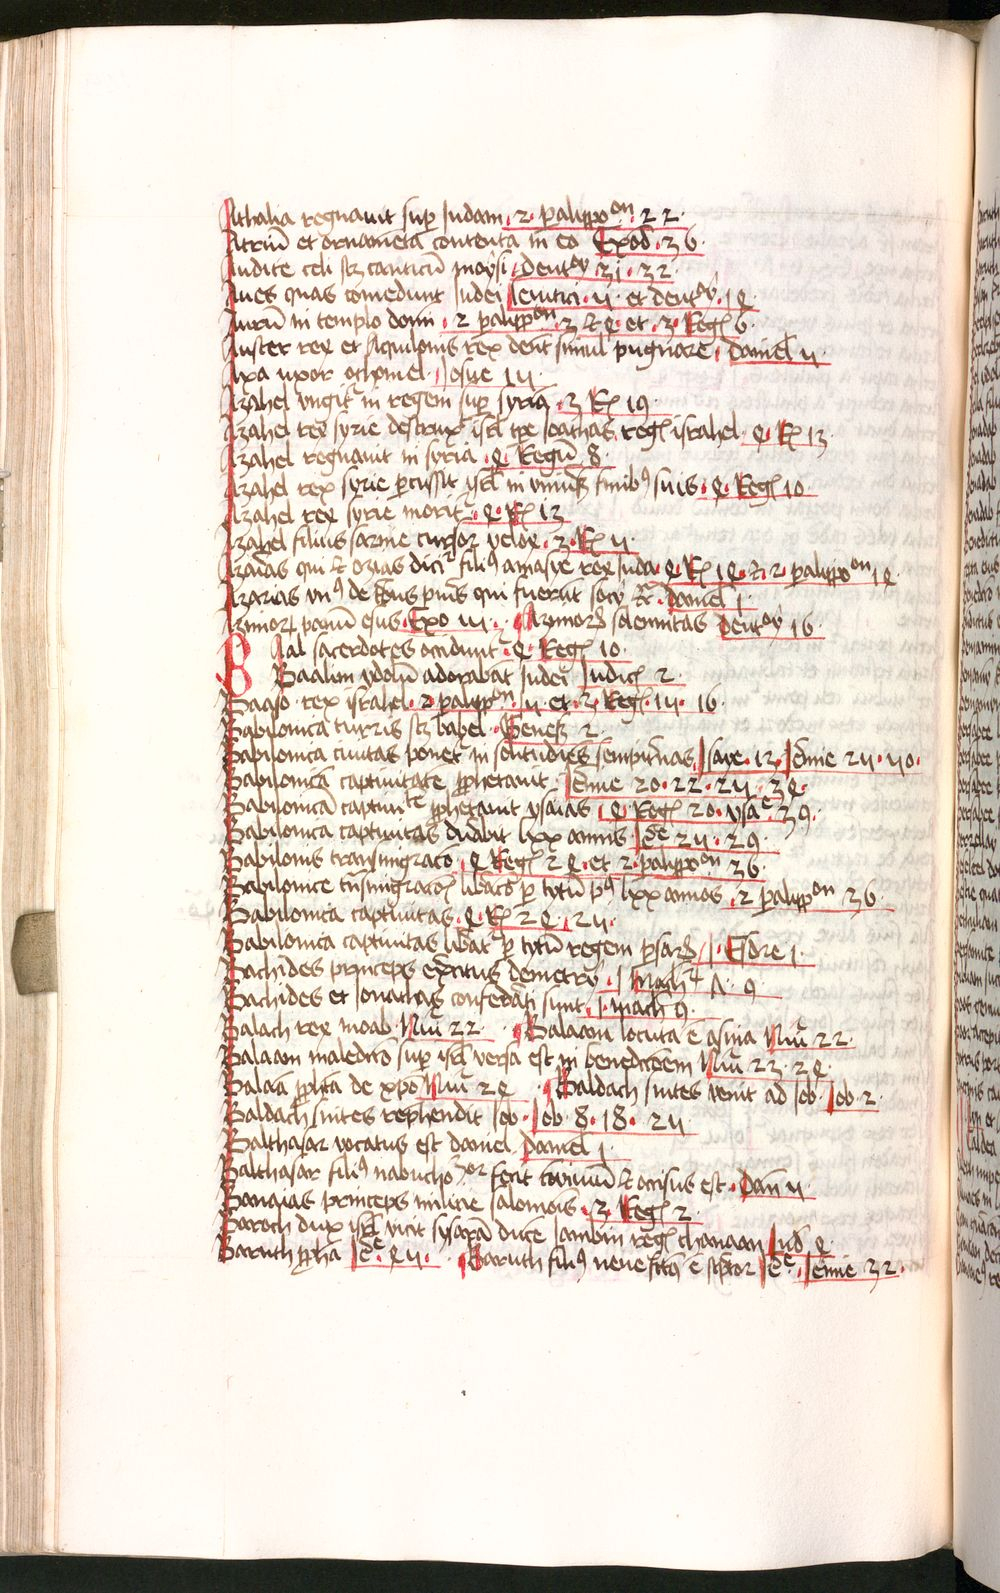 Athalia regnauit sup Judam . 2 . palippoon . 22 .
Atriū et ornamēta contenta in eo Exod . 36 .
Audite celi scz canticū moysi . deutoꝝ 31 . 32 .
Aues quas comedunt Judei Leuitici . 11 . et deutoꝝ . 14
Aurū in templo domi . 2 palippon . 3 et 4 et . 3 Regꝝ 6 .
Auster rex et Aquilonis rex dent simul pugnare . Daniel 11 .
Axa uxor othoniel . Josue 15 .
Azahel ungit' in regem sup syria . 3 Rꝝ 19 .
Azahel rex syrie destrux' isrl tpe Joathas regꝭ israhel . 4 . Rꝝ 13
Azahel regnauit in syria . 4 Regū 8 .
Azahel rex syrie pcussit isrl in uniuersꝭ finibꝰ suis . 4 . Regꝝ 10 .
Azahel rex syrie morit' . 4 . Rꝝ 13
Azahel filius saruie cursor velox . 2 . Rꝝ 11 .
Azarias qui et ozias dicit' filiꝰ amasye rex Juda 4 Rꝝ 14 . et . 2 palippoon 14
Azarias unꝰ de tribus pueris qui fuerūt socij etc̄ . daniel 1 .
Azimoꝝ panū esus . Exo 12 . Azimoꝝ solemnitas deutoꝝ 16 .
Baal sacerdotes occidunt' . 4 Regꝝ 10 .
Baalim ydolū adorabāt Judei Judicꝭ 2 .
Baasa rex israhel . 2 palippon . 11 et . 3 Regꝝ 15 . 16 .
Babilonica turris scz babel . Genesꝭ 2 .
Babilonica ciuitas ponet' in solitudines sempit'nas Isaye . 13 . Jeremie 25 . 50 .
Babilonicā captiuitatē pphetauit . Jeremie 20 . 22 . 25 . 34 .
Babilonicā captiuitatē pphetauit ysaias . 4 Regꝝ 20 . ysae 39 .
Babilonica captiuitas durabit lxx annis Jēe 25 . 29 .
Babilonis transmigratō . 4 Regꝝ 24 . et 2 . palippoon 36 .
Babilonice trāsmigratōs libatō p cyrū pꝰ lxx annos . 2 palippon 36 .
Babilonica captiuitas . 4 Rꝝ 24 . 25 .
Babilonica captiuitas libat' p cyrū regem psarꝝ / 1 . Esdre 1 .
Bachides princeps exercitus demetrij . 1 Mach 7 . 9 .
Bachides et Jonathas confederati sunt . 1 . mach 9 .
Balach rex moab . Nūi 22 . Balaam locuta ē asina Nūi 22 .
Balaam maledictō sup isrl versa est in benedictōem Nūi 23 . 24 .
Balaā ppheta de xpō Nūi 24 . Baldach suites venit ad Job . Job . 2 .
Baldach suites rephendit Job . Job 8 . 18 . 25 .
Balthasar vocatus est daniel . Daniel 1 .
Balthasar filiꝰ nabuchodonosor fecit conuiuiū et occisus est . Dan 5 .
Banaias princeps milicie salomonis . 3 Regꝝ 2 .
Baroch dux isrl vicit sysarā ducē Jambin regꝭ chanaan Judicū 4 .
Baruch ppheta Jēe . 45 . Baruch filiꝰ nerie fuit ꝫ scriptor Jēe . Jeremie 32 .